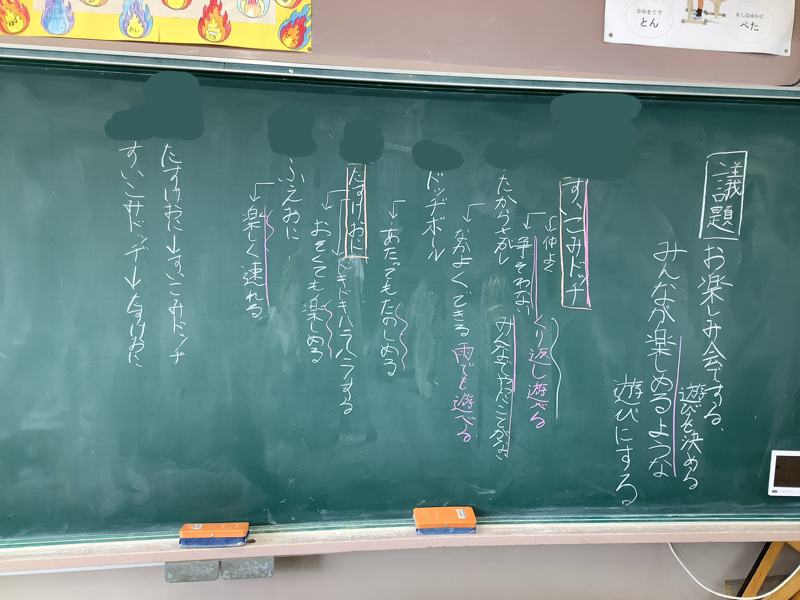 議題
お楽しみ会でする、
遊びを決める
みんなが楽しめるような
遊びにする
すいこみドッヂ
仲よく
争そわない
くり返し遊べる
たからさがし
みんなでやったことがない
なかよく、できる
雨でも遊べる
ドッヂボール
あたってもたのしめる
たすけおに
ドキドキハラハラする
おそくても楽しめる
ふえおに
楽しく走れる
たすけおに→すいこみドッヂ
すいこみドッヂ→たすけおに
とん
あしはゆかに
ぺた